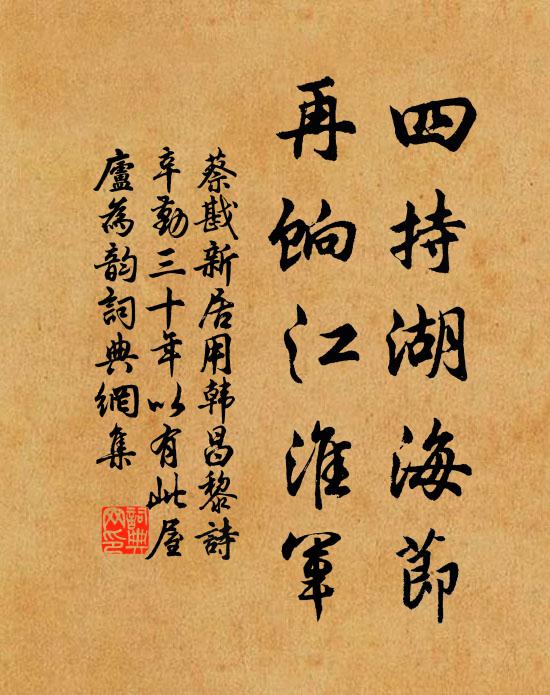 四持湖海節
再餉江淮軍
蔡戡新居用韩昌黎詩
辛勤三十年以有此屋
廬為韵詞典網集
詞典
网印